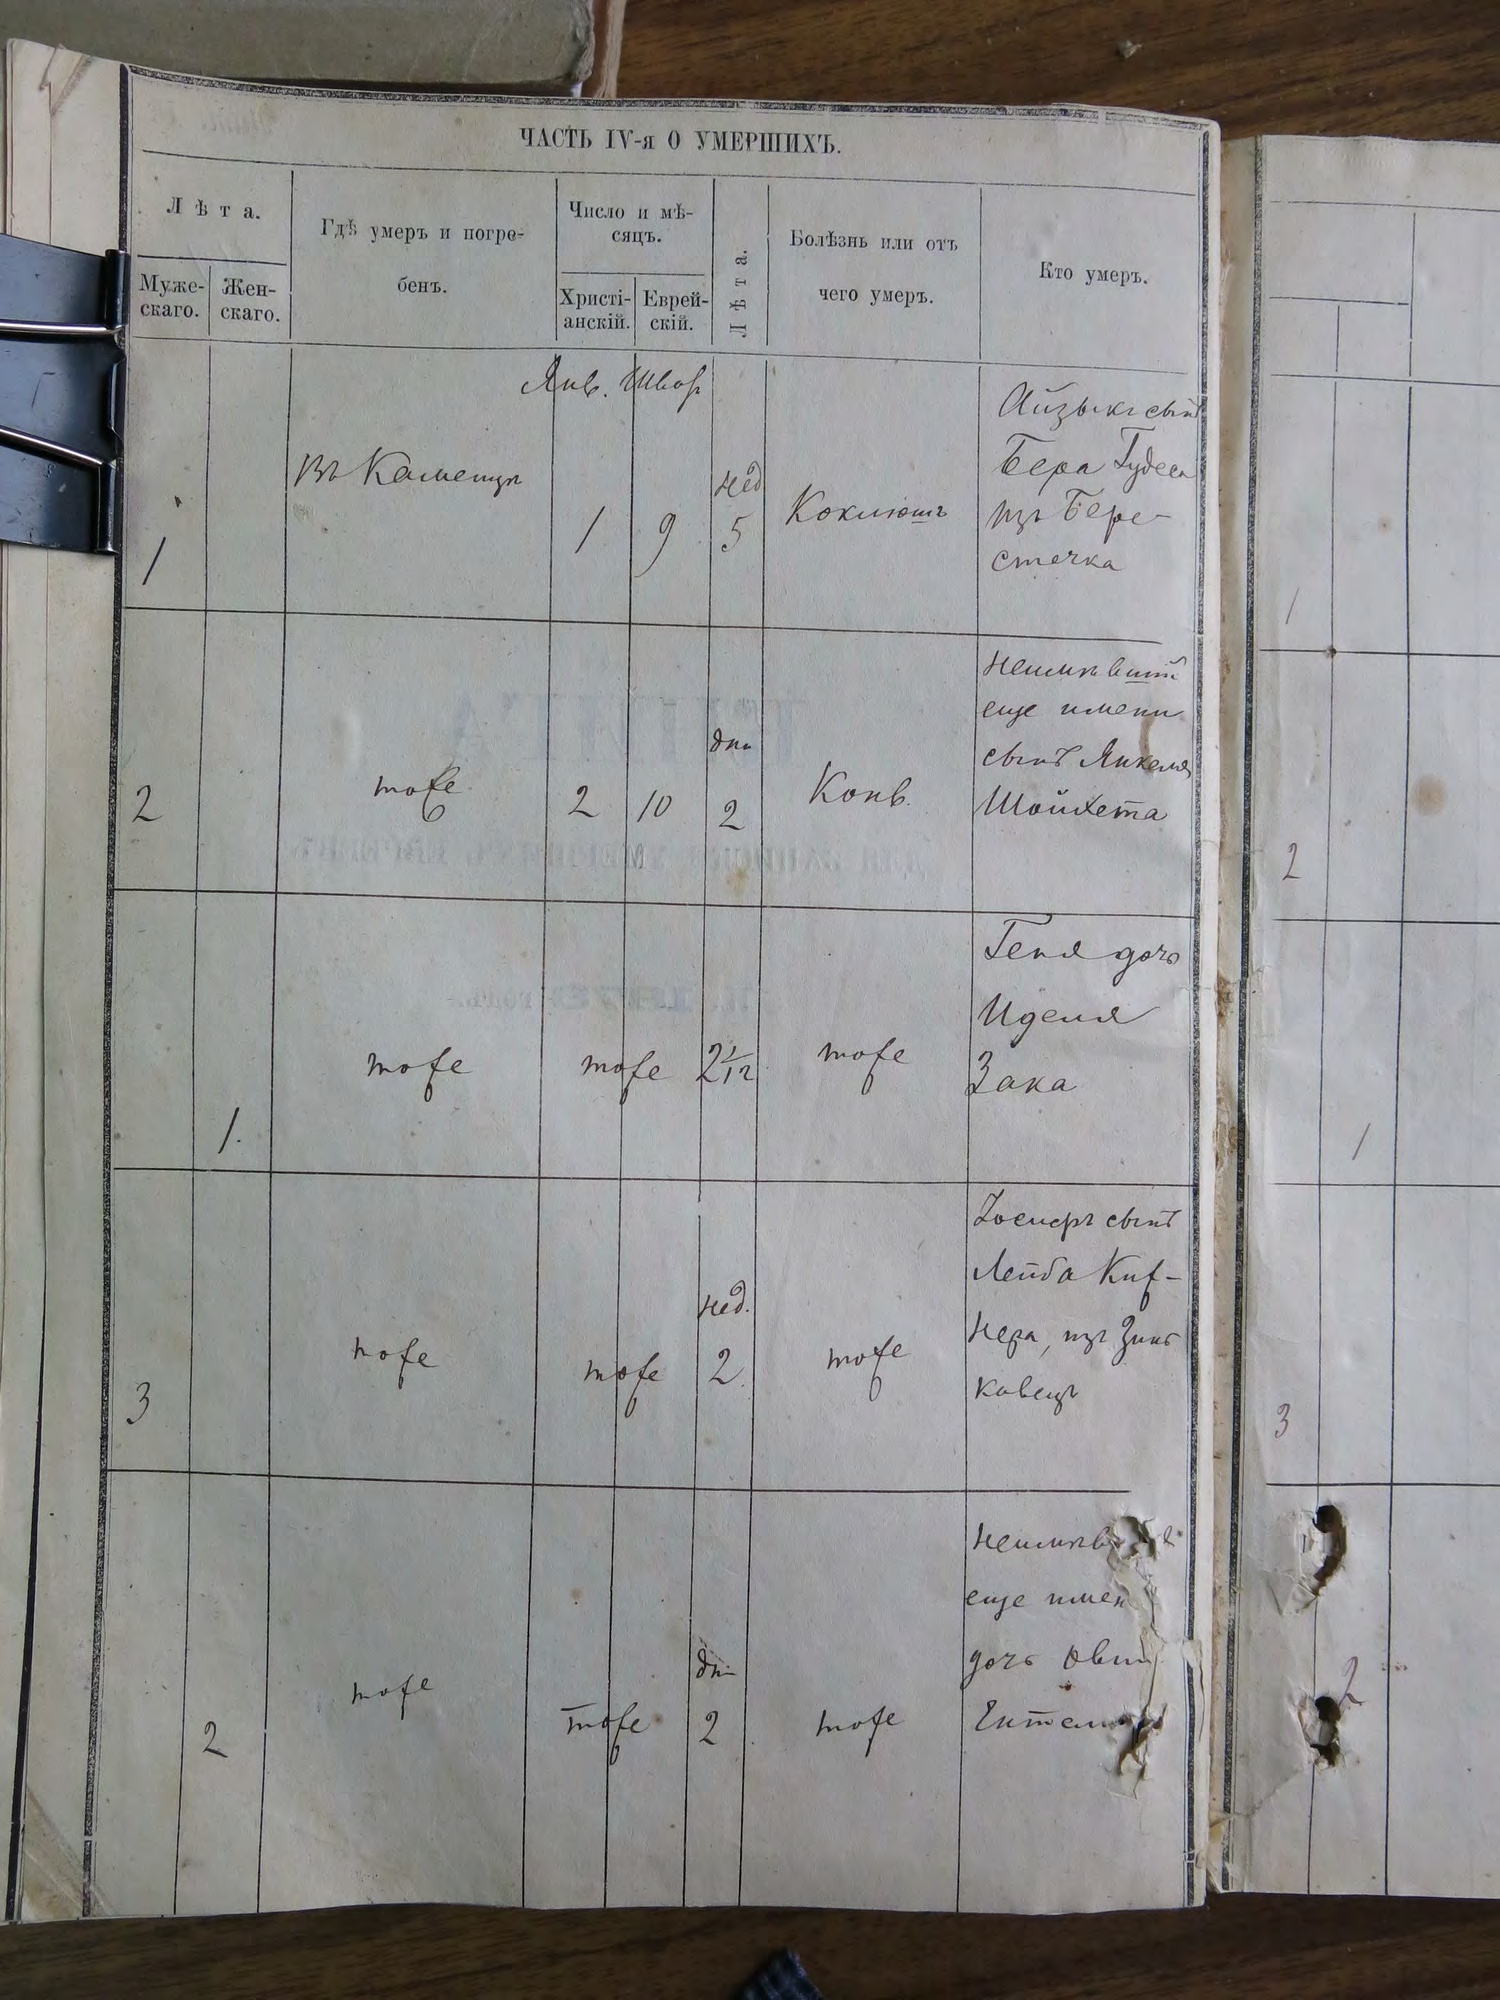 ЧАСТЬ IV-я О УМЕРШИХЪ.
Лѣта.
Муже-
скаго.
Жен-
скаго.
Гдѣ умеръ и погре-
бенъ.
Число и мѣ-
сяцъ.
Христі-
анскій.
Еврей-
скій.
Лѣта.
Болѣзнь или отъ
чего умеръ.
Кто умеръ.
Янв. Шват
1
Въ Каменцѣ
1
9
нед
5
Коклюшъ
Айзыкъ сынъ
Бера Гудеса
изъ Бере-
стечка
2
тоже
2
10
дни
2
Конв.
Неимѣвшій
еще имени
сынъ Янкеля
Шойхета
1.
тоже
тоже
2 1/12
тоже
Геня дочь
Иделя
Зака
3
тоже
тоже
нед.
2.
тоже
сынъ
Лейба Киж-
нера, изъ Зинь
ковецъ
2
тоже
тоже
дни
2
тоже
еще
дочь
1
2
1
3
2